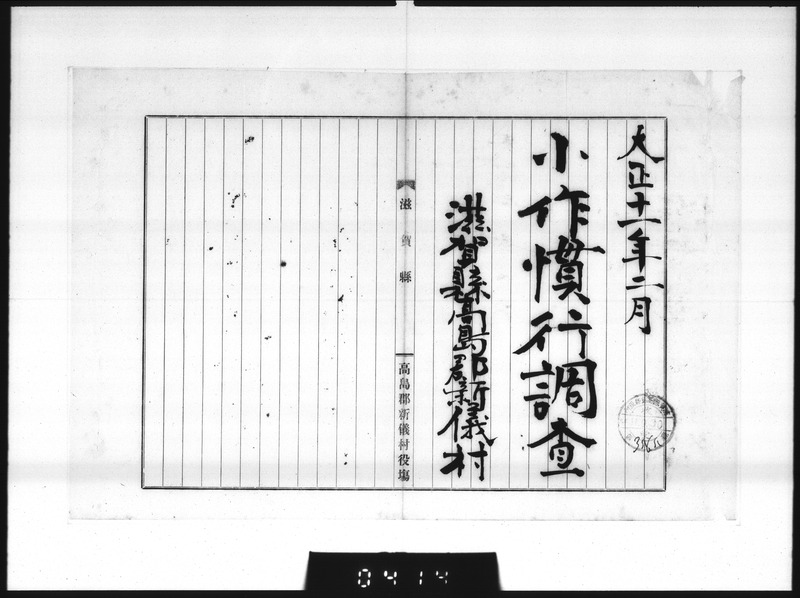 大正十一年二月
小作慣行調査
滋賀縣高島郡新儀村
滋賀縣
高島郡新儀村役場
0414